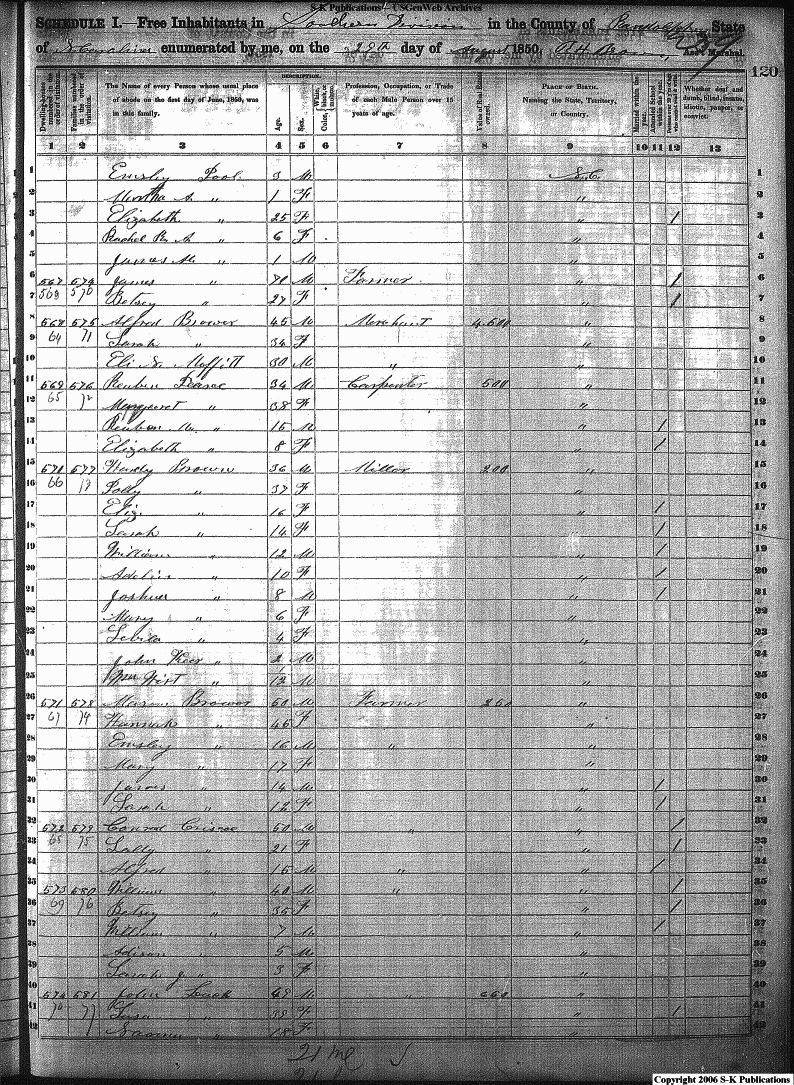 S-K Publications - USGenWeb Archives
SCHEDULE I.—Free Inhabitants in Southern Division in the County of Randolph State
of N Carolina enumerated by me, on the 29th day of August 1850. Ass't Marshal.
120
Dwelling-houses numbered in the order of visitation. Families numbered in the order of visitation. The Name of every Person whose usual place of abode on the first day of June, 1850, was in this family. DESCRIPTION. Age. Sex. Color, White, black, or mulatto. Profession, Occupation, or Trade of each Male Person over 15 years of age. Value of Real Estate owned. PLACE OF BIRTH. Naming the State, Territory, or Country. Married within the year. Attended School within the year. Whether deaf and dumb, blind, insane, idiotic, pauper, or convict.
1 2 3 4 5 6 7 8 9 10 11 12 13
1 Emsley Pool 3 M N.C. 1
2 Martha A. " 1 F " 2
3 Elizabeth " 25 F " / 3
4 Rachel " 6 F " 4
5 James M. " 1 M " 5
6 567 574 James " M Farmer " / 6
7 Betsey " 27 F " / 7
8 568 575 Alfred Brower 45 M Merchant 4.600 " 8
9 64 71 Sarah " 34 F 9
10 Eli Moffitt 30 M " " 10
11 569 576 Reuben Pearce 34 M Carpenter 500 " 11
12 65 72 Margaret " 38 F " 12
13 Reuben M. " 15 M " / 13
14 Elizabeth " 8 F " / 14
15 570 577 Hardy Brown 36 M Miller 200 " 15
16 66 73 Polly " 37 F " 16
17 Eliz. " 16 F " / 17
18 Sarah " 14 F " / 18
19 William " 12 M " / 19
20 Adelin " 10 F " / 20
21 Joshua " 8 M " / 21
22 Mary " 6 F " 22
23 " 4 F " 23
24 John " 2 M " 24
25 " 12 M " 25
26 571 578 Brower 50 M Farmer 250 " 26
27 67 74 Hannah " 46 F " 27
28 Emsley " 16 M " " 28
29 Mary " 17 F " 29
30 James " 14 M " / 30
31 Sarah " 12 F " / 31
32 572 579 Conrad Criscoe 50 M " " / 32
33 75 Sally " 21 F " / 33
34 Alfred " 15 M " " / 34
35 573 580 William " 40 M " " / 35
36 69 76 Betsey " 35 F " / 36
37 William " 7 M " / 37
38 Adison " 5 M " 38
39 Sarah J. " 3 F " 39
40 574 581 John 49 M " 550 " 40
41 77 " 39 F " / 41
42 " 18 F " 42
21 M
Copyright 2006 S-K Publications